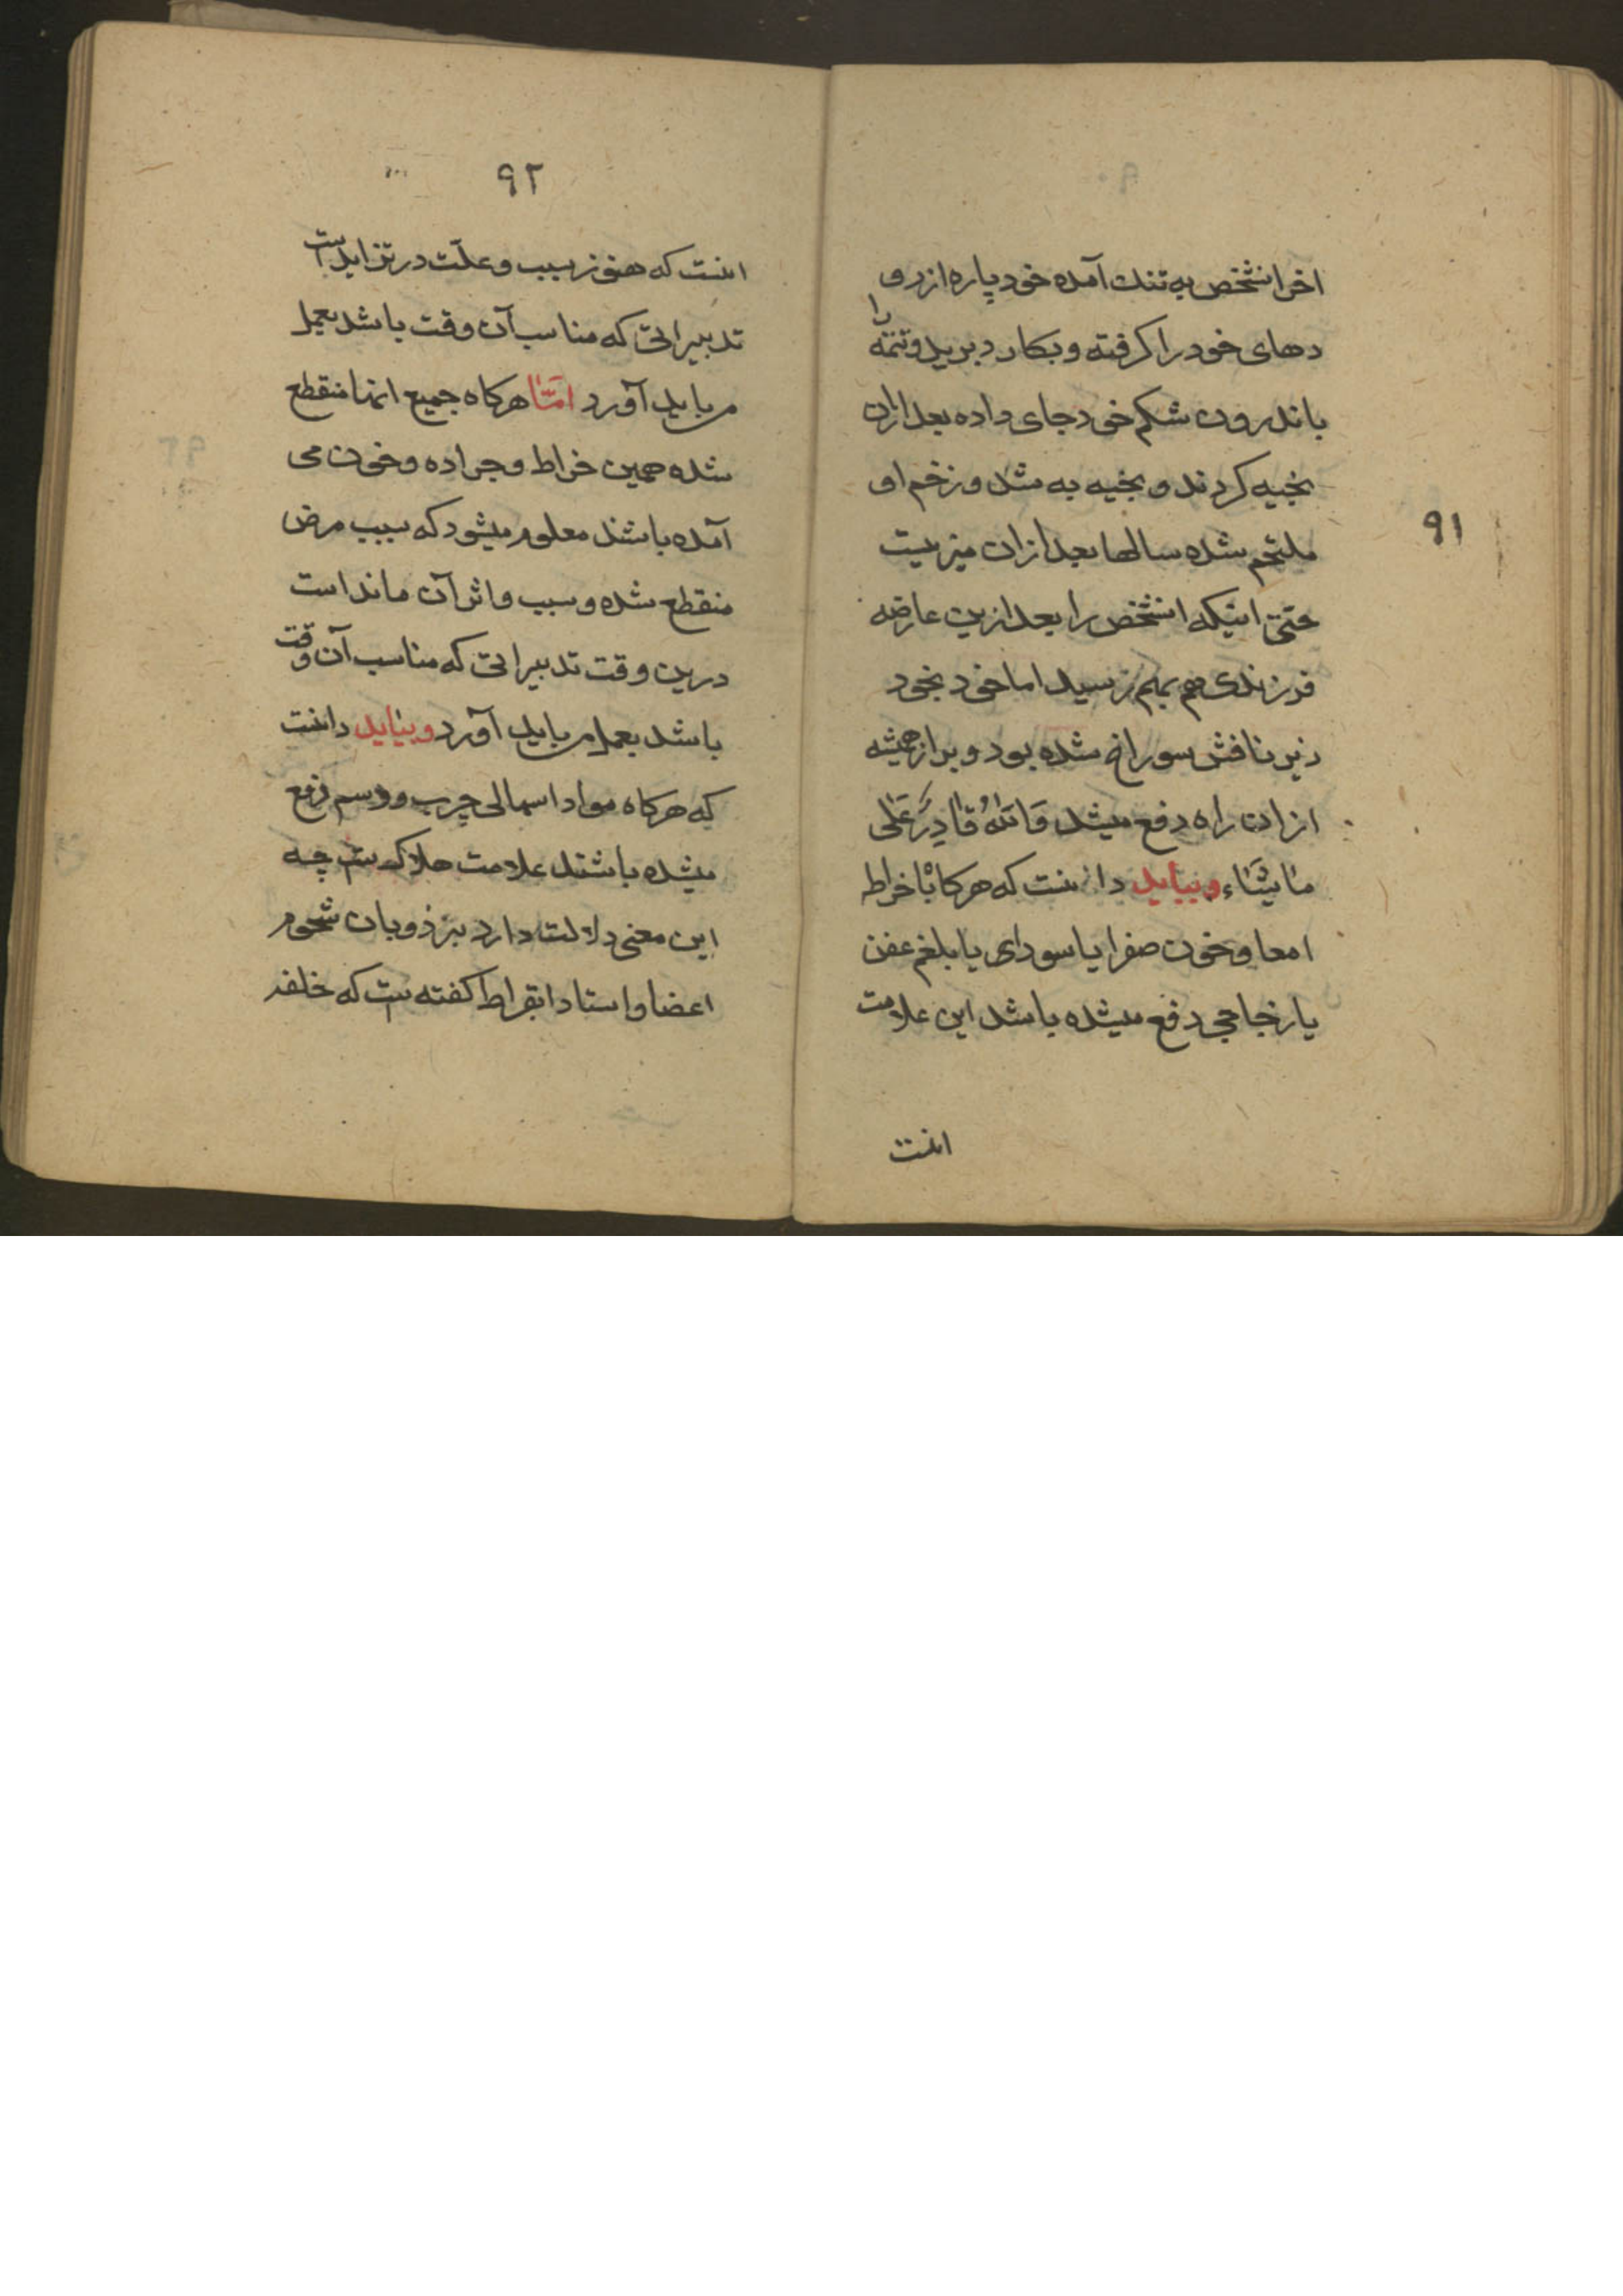 ۹۱
اخر انشخص به تنك آمده خود پاره از رو
دهای خود را کرفته و بکارد برید و تتمّه را
باندرون شکم خود جای داده بعد ازان
بخیه کردند و بخیه به شد و زخم او
ملتحم شده سالها بعد ازان میزیست
حتیّ اینکه انشخص را بعد ازین عارضه
فرزندی هم بهم رسید اما خود بخود
زیر نافش سوراخ شده بود و براز همیشه
ازان راه دفع میشد وَاللّٰهُ قَادِرٌ عَلٰی
مٰا یَشٰاء و بباید دانست که هرکاه با خراط
امعا و خون صفرا یا سودای یا بلغم عفن
یا زجاجی دفع میشده باشد این علامت
انست
۹۲
انست که هنوز سبب و علّت در تزاید است
تدبیراتی که مناسب آن وقت باشد بعمل
می باید آورد امّا هرکاه جمیع انها منقطع
شده همین خراط و جراده و خون می
آمده باشند معلوم میشود که سبب مرض
منقطع شده و سبب واثر آن ماند است
درین وقت تدبیراتی که مناسب آن وقت
باشد بعمل می باید آورد و بباید دانست
که هرکاه مواد اسهالی چرب و دسم دفع
میشده باشند علامت هلاکست چه
این معنی دلالت دارد بر ذوبان شحوم
اعضا و استاد ابقراط کفته ست که خلفه